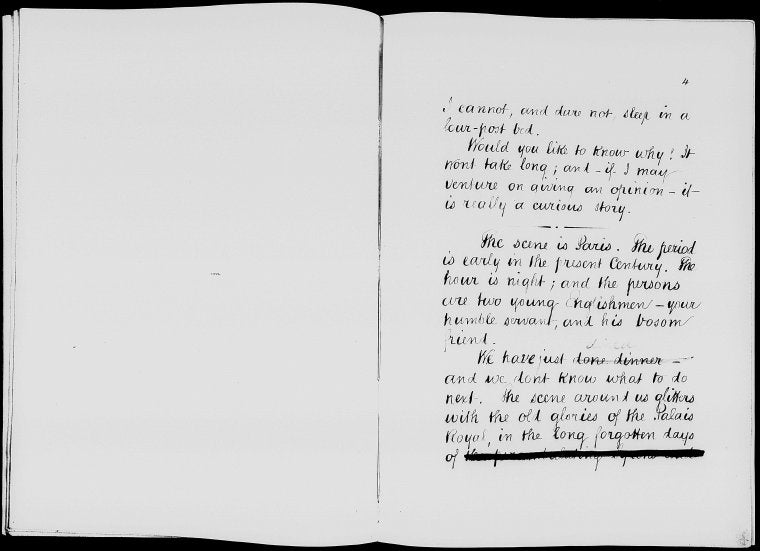 4
I cannot, and dare not, sleep in a
four-post bed.
Would you like to know why? It
wont take long; and - if I may
venture on giving an opinion - it
is really a curious story.
The scene is Paris. The period
is early in the present Century. The
hour is night; and the persons
are two young Englishmen - your
humble servant, and his bosom
friend.
dined
We have just done dinner -
and we dont know what to do
next. The scene around us glitters
with the old glories of the Palais
Royal, in the long forgotten days
of